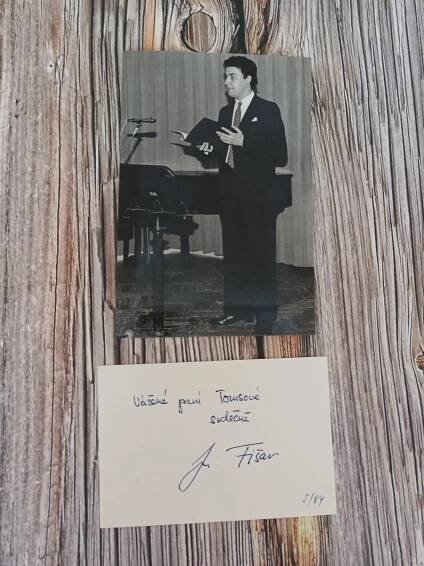 Vážené paní Tomsové
srdečně
Jan Fišar
5/84